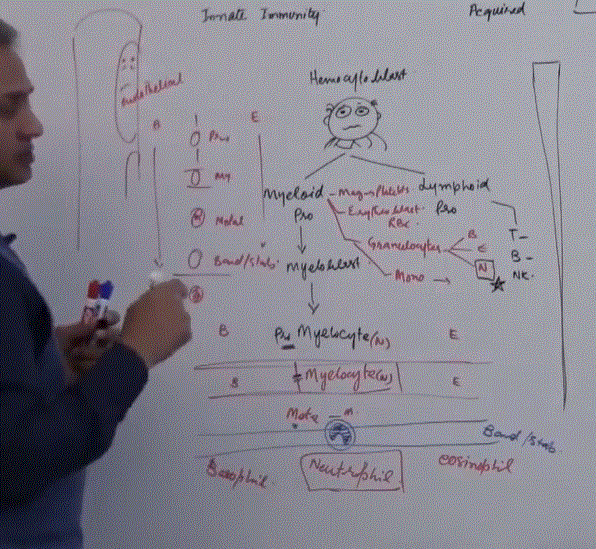 Innate Immunity
Acquired
Hemocytoblast
Endothelial
B
E
Pro
My
Metal
Band/stab.
Myeloid - Mag → Platelets
Pro
- Erythroblast
RBC
Granulocytes
B
E
N
Mono →
Lymphoid
Pro
T -
B -
NK.
Myeloblast
B
Pro Myelocyte (N)
E
B
Myelocyte (N)
E
Meta - M
Band/stab.
Basophil
Neutrophil
eosinophil